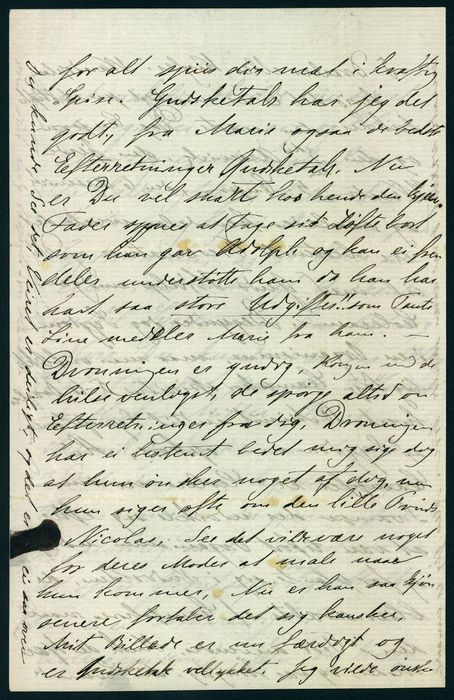 for alt spiis dig mæt i kraftig
Spise. Gudskelak har jeg det
godt, fra Marie ogsaa de bedste
Eefterretninger Gudskelak. Nu
er Du vel snart hos hende den kjere.
Fader synes at tage sid Løfte bort
som han gav Adolph og kan ei frem
deles understøtte ham da han har
havt saa store Udgifter!! som Tante
Line meddeler Marie fra ham. —
Dronningen er yndig, Kongen med
hilse venligst, de spørge altid om
Eefterretninger fra dig, Dronningen
har ei bestemt bedet mig sige dig
at hun ønsker noget af dig, men
hun siger ofte om den lille Prinds
Nicolas, See det vil være noget
for deres Moder at male naar
hun kommer, Nu er han saa kjøn
senere fortaber det sig kanskee,
Mit Billede er nu færdigt og
er Gudskelak vellykket. Jeg vilde ønske
Jeg kunde see det Eliset er deiligt, og det er ei saa